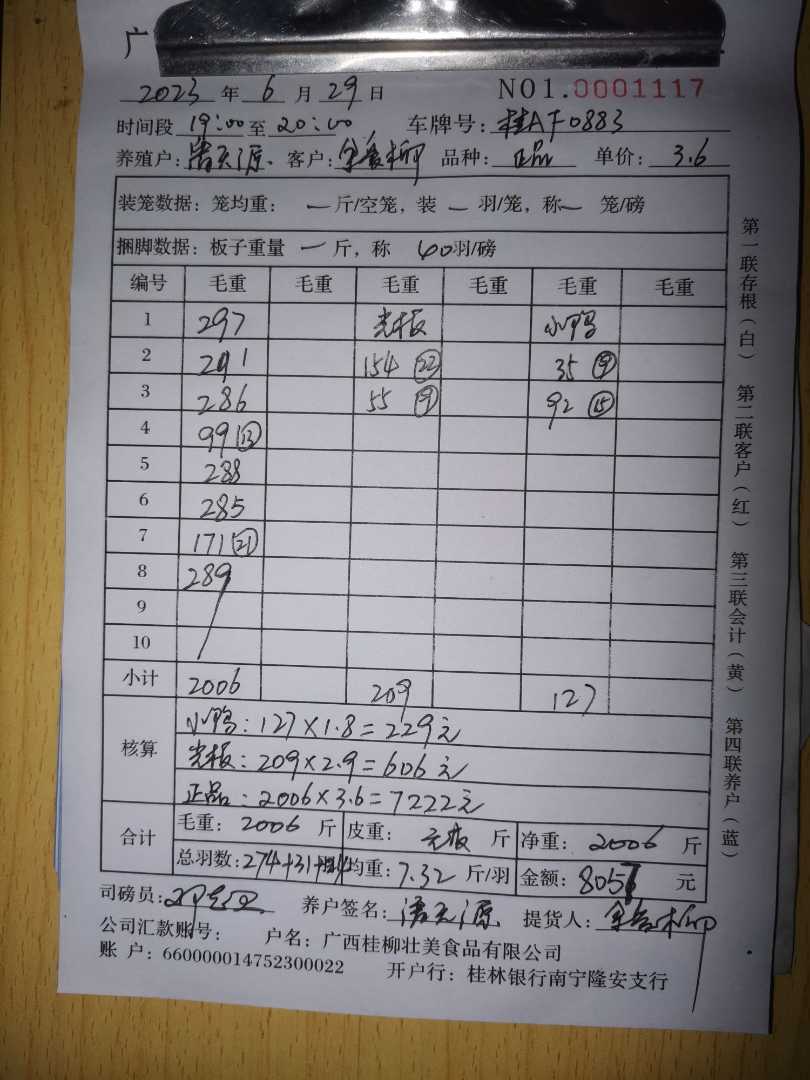 广
2023 年 6 月 29 日 NO1.0001117
时间段 19:00 至 20:00 车牌号: 桂AF0883
养殖户: 客户: 品种: 正品 单价: 3.6
装笼数据: 笼均重: 一 斤/空笼, 装 一 羽/笼, 称 一 笼/磅
捆脚数据: 板子重量 一 斤, 称 40羽/磅
编号 毛重 毛重 毛重 毛重 毛重 毛重
1 297 光板 小鸭
2 291 154 (22) 35 (9)
3 286 55 (9) 92 (15)
4 99 (13)
5 288
6 285
7 171 (21)
8 289
9
10
小计 2006 209 127
核算 小鸭: 127×1.8=229元
光板: 209×2.9=606元
正品: 2006×3.6=7222元
合计 毛重: 2006 斤 皮重: 斤 净重: 2006 斤
总羽数: 274+31+24 均重: 7.32 斤/羽 金额: 8057 元
司磅员: 养户签名: 提货人:
公司汇款账号: 户名: 广西桂柳壮美食品有限公司
账 户: 660000014752300022 开户行: 桂林银行南宁隆安支行
第一联存根(白) 第二联客户(红) 第三联会计(黄) 第四联养户(蓝)